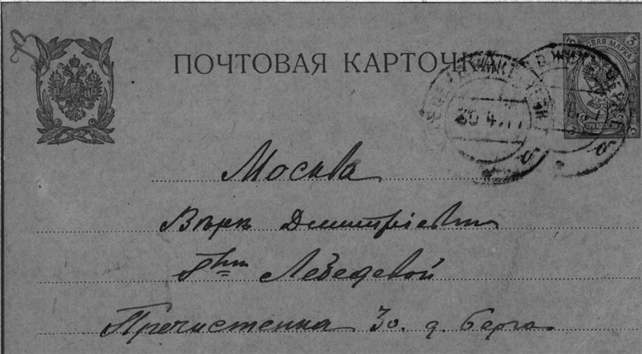 ПОЧТОВАЯ КАРТОЧКА
30.4.11
Москва
Вѣрѣ Дмитріевнѣ
Лебедевой
Пречистенка 30. д. Берга.